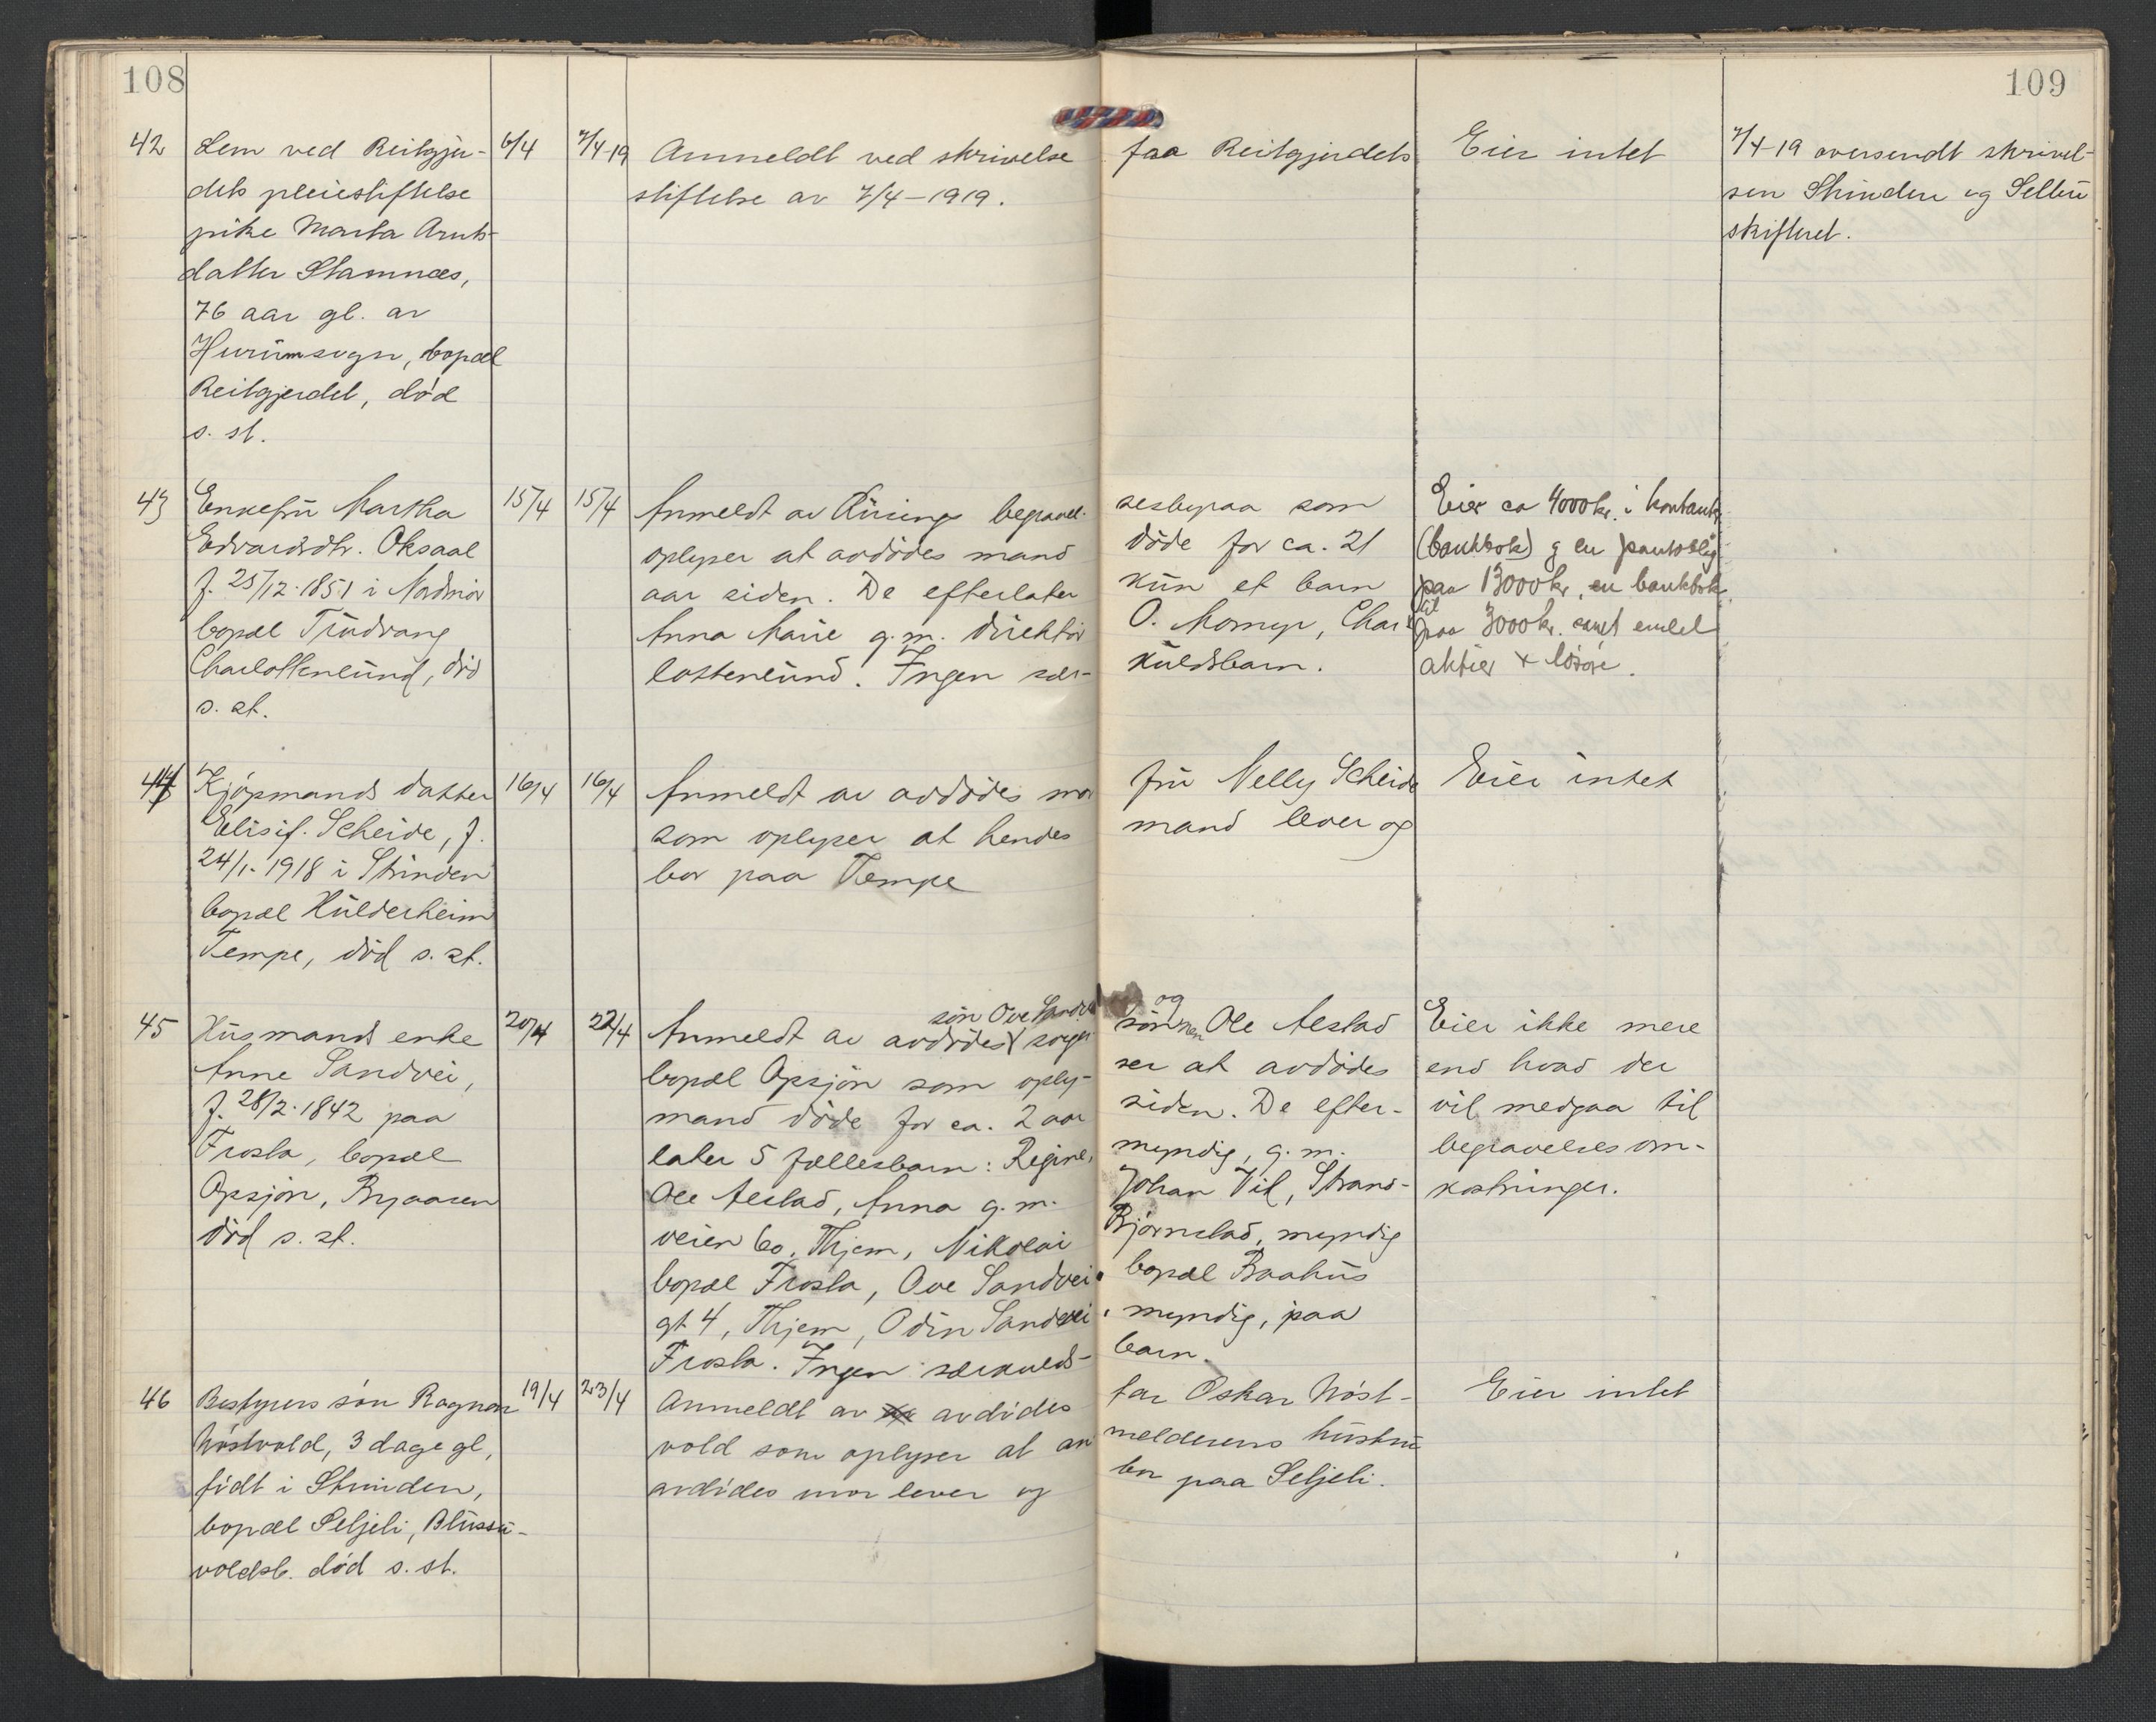 108
109
42 Lem ved Reitgjer- 6/4 7/4-19 Anmeldt ved skrivelse fra Reitgjerdets Eier intet 7/4-19 oversendt skrivel-
dets pleiestiftelse stiftelse av 7/4-1919. sen Strinden og Selbu
pike Marta Arnts- skifteret.
datter Stamnæs,
76 aar gl. av
sogn, bopæl
Reitgjerdet, död
s. st.
43 Enkefru Martha 15/4 15/4 Anmeldt av Rüsings begravel- sesbyraa som Eier ca 4000 kr. i kontanter
Edvardsdtr. Oksaal oplyser at avdödes mand döde for ca. 21 (bankbok) og en pantoblig.
f. 25/12-1851 i Nordmör aar siden. De efterlater kun et barn paa 13000 kr, en bankbok
bopæl Trudvang Anna Marie g.m. direktör O. Mornyr, Char- til paa 3000 kr. samt endel
Charlottenlund, död lottenlund. Ingen sær- kuldsbarn. aktier + lösöre.
s. st.
44 Kjöpmands datter 16/4 16/4 Anmeldt av avdödes mor fru Nelly Scheide Eier intet
Elisif. Scheide, f. som oplyser at hendes mand lever og
24/1-1918 i Strinden bor paa Tempe
bopæl Hulderheim
Tempe, död s. st.
45 Husmands enke 20/4 22/4 Anmeldt av avdödes sön Ove Sandvei og sviger- sönnen Ole Aestad Eier ikke mere
Anne Sandvei, bopæl Opsjön som oply- ser at avdödes end hvad der
f. 28/2-1842 paa mand döde for ca. 2 aar siden. De efter- vil medgaa til
Frosta, bopæl later 5 fællesbarn: Regine, myndig, g.m. begravelsesom-
Opsjön, Byaasen Ole Aestad, Anna g.m. Johan Vil, Strand- kostninger.
död s. st. veien 60, Thjem, Nikolai Björnstad, myndig
bopæl Frosta, Ove Sandvei, bopæl Baahus
gt 4, Thjem, Odin Sandvei, myndig, paa
Frosta. Ingen særkulds- barn.
46 Bestyrers sön Ragnar 19/4 23/4 Anmeldt av avdödes far Oskar Nöst- Eier intet
Nöstvold, 3 dage gl, vold som oplyser at an- melderens hustru
födt i Strinden, avdödes mor lever og bor paa Seljeli.
bopæl Seljeli, Blussu-
voldsb. död s. st.